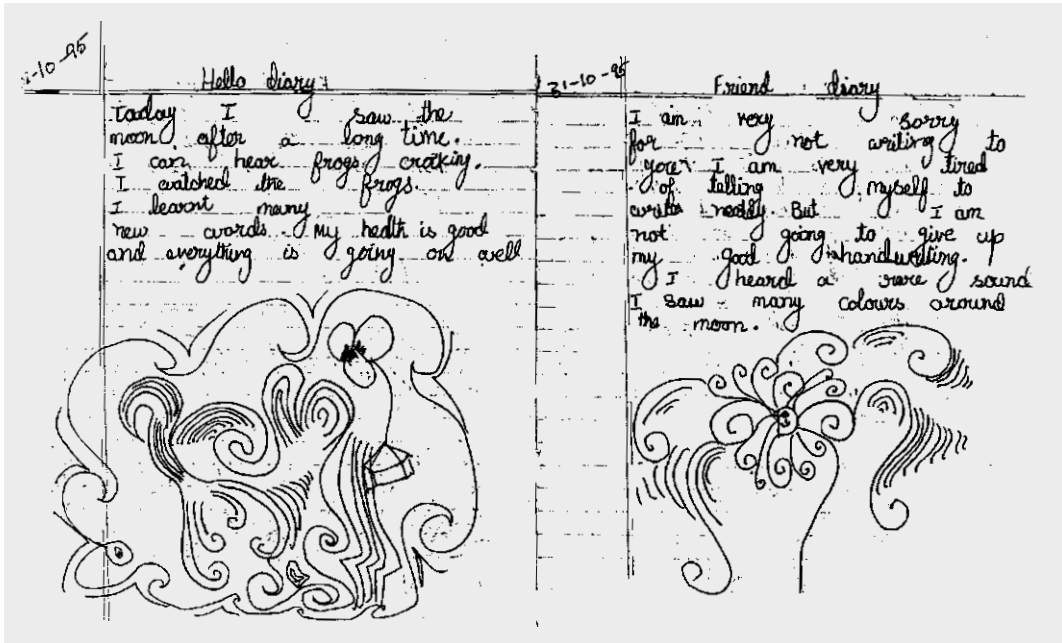 -10-95
Hello diary
today I saw the
moon after a long time.
I can hear frogs croaking.
I watched the frogs.
I learnt many
new words. My health is good
and everything is going on well
31-10-95
Friend diary
I am very sorry
for not writing to
you. I am very tired
of telling myself to
write neatly. But I am
not going to give up
my good handwriting.
I heard a rare sound
I saw many colours around
the moon.